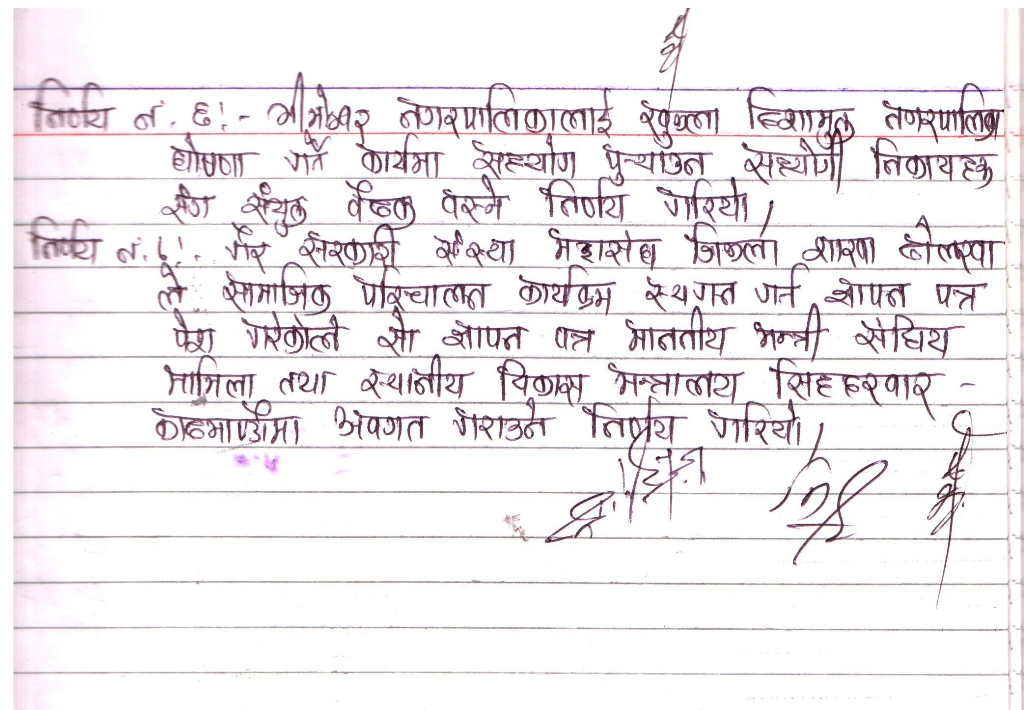 निर्णय नं. ६!- भीमेश्वर नगरपालिकालाई खुल्ला दिशामुक्त नगरपालिका
घोषणा गर्ने कार्यमा सहयोग पुर्‍याउन सहयोगी निकायहरु
संग संयुक्त वैठक वस्ने निर्णय गरियो।
निर्णय नं. ८!. गैर सरकारी संस्था महासंघ जिल्ला शाखा दोलखा
ले सामाजिक परिचालन कार्यक्रम स्थगन गर्न ज्ञापन पत्र
पेश गरेकोले सो ज्ञापन पत्र माननीय मन्त्री संघिय
मामिला तथा स्थानीय विकास मन्त्रालय सिंहदरवार -
काठमाण्डौमा अवगत गराउने निर्णय गरियो।